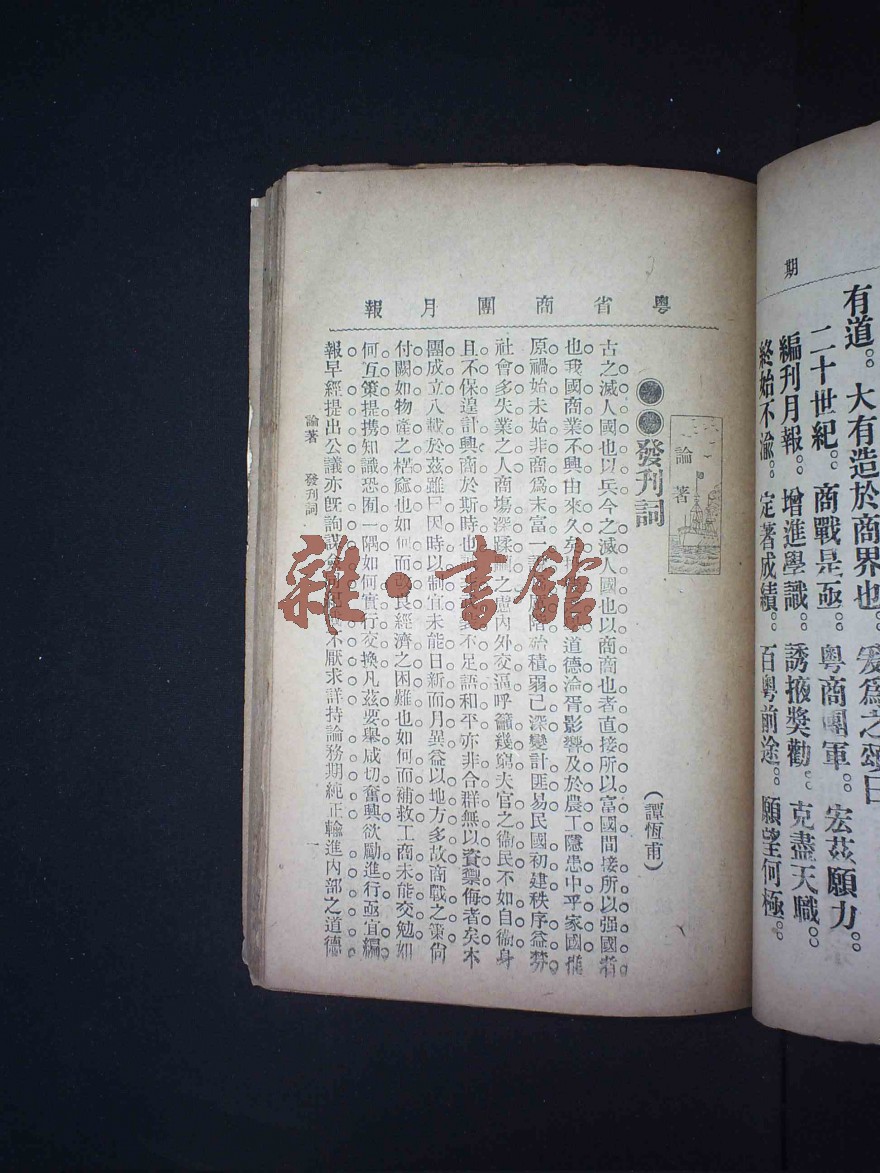 期
有道。大有造於商界也。爰為之頌曰
二十世紀。商戰是亟。粵商團軍。宏茲願力。
編刊月報。增進學識。誘掖獎勸。克盡天職。
終始不渝。定著成績。百粵前途。願望何極。
粵省商團月報
論著
●●發刊詞
(譚恆甫)
古之滅人國也以兵今之滅人國也以商商也者直接所以富國間接所以强國者
也我國商業不興由來久矣 道德淪胥影響及於農工隱患中乎家國推
原禍始未始非商為末富一 積弱已深變計匪易民國初建秩序益棼
社會多失業之人商塲深蹂躪之虞內外交漓呼籲幾窮夫官之衞民不如自衞身
且不保遑計興商於斯時也 不足語和平亦非合群無以資禦侮者矣本
團成立八載於茲雖曰因時以制宜未能日新而月異益以地方多故商戰之策尙
付闕如物產之楛窳也如何而改良經濟之困難也如何而補救工商未能交勉如
何互策提携知識恐囿一隅如何實行交換凡茲要舉咸切奮興欲勵進行亟宜編
報早經提出公議亦旣詢謀 不厭求詳持論務期純正輸進內部之道德
論著 發刊詞
一
雜·書館